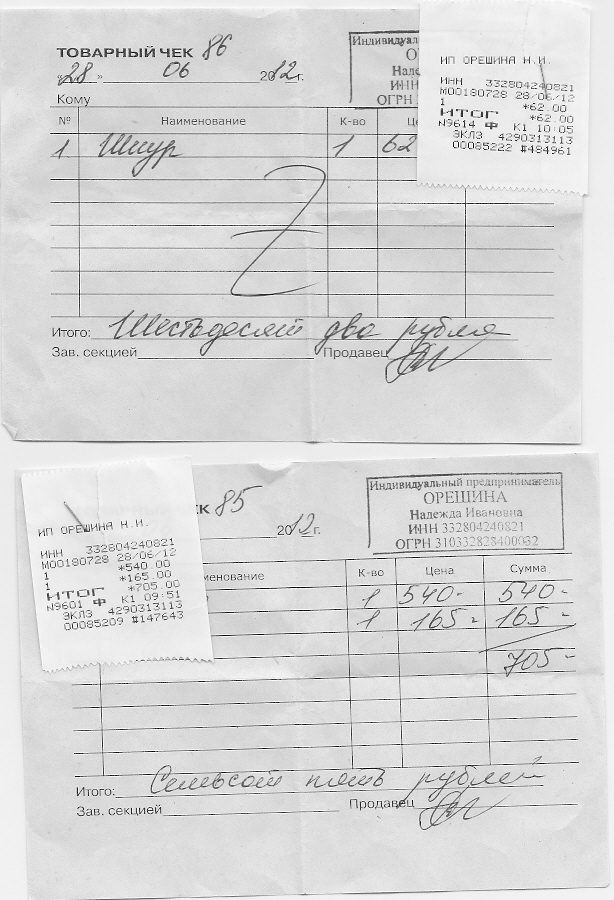 ТОВАРНЫЙ ЧЕК 86
"28" 06 2012г.
Кому
Индивидуал
О
Наде
ИНН
ОГРН 3
ИП ОРЕШИНА Н.И.
ИНН 332804240821
М00180728 28/06/12
1 *62.00
ИТОГ *62.00
N9614 Ф К1 10:05
ЭКЛЗ 4290313113
00085222 #484961
№ Наименование К-во Це
1 Шнур 1 62
Итого: Шестьдесят два рубля
Зав. секцией Продавец
ЕК 85
2012г.
Индивидуальный предприниматель
ОРЕШИНА
Надежда Ивановна
ИНН 332804240821
ОГРН 310332828400032
ИП ОРЕШИНА Н.И.
ИНН 332804240821
М00180728 28/06/12
1 *540.00
1 *165.00
ИТОГ *705.00
N9601 Ф К1 09:51
ЭКЛЗ 4290313113
00085209 #147643
менование К-во Цена Сумма
1 540- 540-
1 165- 165-
705-
Итого: Семьсот пять рублей
Зав. секцией Продавец